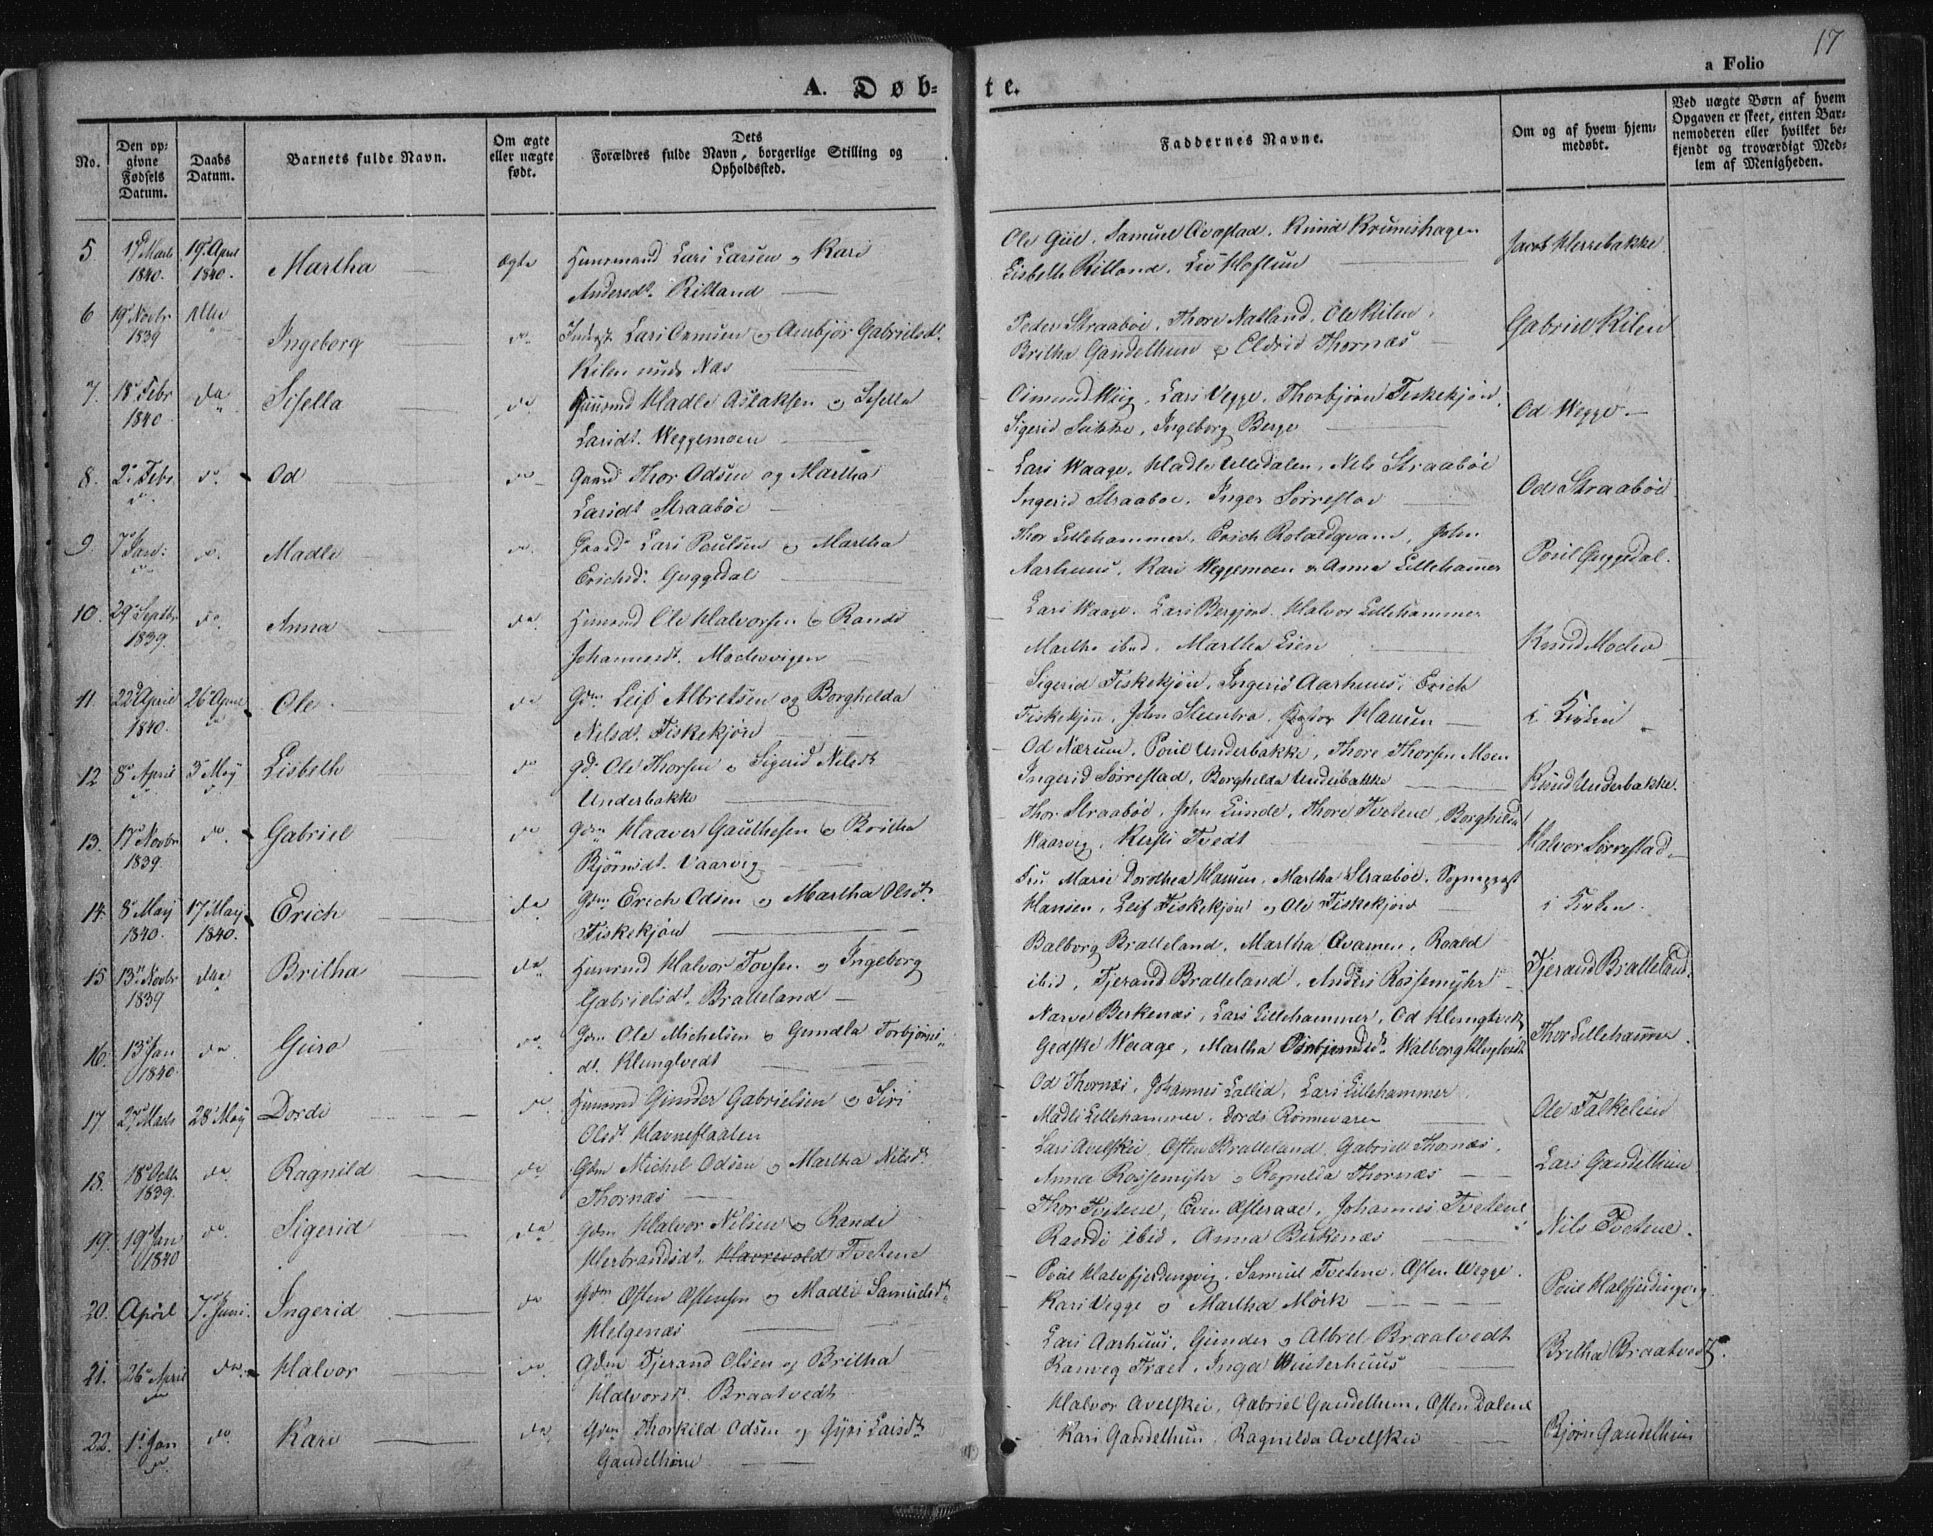 17
a Folio
A. Døb-te.
No.
Den op-
givne
Fødsels
Datum.
Daabs
Datum.
Barnets fulde Navn.
Om ægte
eller uægte
født.
Dets
Forældres fulde Navn, borgerlige Stilling og
Opholdssted.
Faddernes Navne.
Om og af hvem hjem-
medøbt.
Ved uægte Børn af hvem
Opgaven er skeet, enten Bar-
nemoderen eller hvilket be-
kjendt og troværdigt Med-
lem af Menigheden.
5 19 April 1840. Martha ægte Huusmand Lars Larsen og Kari
Andersdt. Ritland
Samuel Knud
Lisbeth Ritland, Liv Jacob Herrebakke
6 19 Novbr 1839 Ingeborg do. Lars og Gabrielsdt.
Kilen under Næs
Peder Straabøe, Thore Natland, Ole Kilen,
Britha Gandelhuun og Eldrid Thornæs Gabriel Kilen
7. 18 Febr 1840 da Sisella do Hadle Aslaksen og Sisella
Larsdt. Weggemoen
Lars Vegge, Thorbjørn Fiskekjøn,
Sigerid Ingeborg Berge Od Wegge
8. 2. Febr. do do. Od do Gaard Thor Odsen og Martha
Larsdt Straabøe
Lars Waage, Hadle Ulledalen, Nels Straabøe
Ingerid Straaboe, Inger Sørrestad Od Straabøe
9. 7 Jan: do. do. Madle do. Gaard Lars Poulsen og Martha
Erichsdt. Guggedal
Thor Lillehammer, Erich Roaldqvam, John
Aarhuus, Kari Weggemoen og Anna Lillehammer Poul Guggedal.
10. 29 Septbr 1839. do. Anna da. Huusmd Ole Halvorsen og Rande
Johannesdt.
Lars Waage, Lars Halvor Lillehammer
Martha ibid, Martha Lien Knud Moden
11. 22d April 1840. 26 April do Ole do Gdm. Leif Albretsen og Borghelda
Nilsdt. Fiskekjøn
Sigerid Fiskekjøn, Ingerid Aarhuus, Erich
Fiskekjøn, John Steenbra, Hansen i Kirken
12 8 April do. 3 May do Lisbeth do gd. Ole Thorsen og Sigerid Nilsdt
Underbakke
Od Nærum, Poul Underbakke, Thore Thorsen Moen
Ingerid Sørrestad, Borghelda Underbakke Knud Underbakke.
13. 17 Novbr 1839. do Gabriel do Gdm Haaver Gauthesen og Britha
Bjørnsdt. Vaarvig
Thor Straabøe, John Lunde, Thore Tvetene, Borghild
Waarvig, Kirsti Tvedt Halvor Sørrestad
14. 8 May 1840. 17 May 1840. Erich da Gdm Erich Odsen og Martha Olsdt.
Fiskekjøn
Fru Marie Dorothea Hansen, Martha Straabøe, Sogneprest
Hansen, Leif Fiskekjøn og Ole Fiskekjøn i Kirken.
15 13 Novbr 1839 Britha da Huusmd Halvor Tovsen og Ingeborg
Gabrielsdt. Bratteland
Balborg Bratteland, Martha Avamen, Roald
ibid, Tjerand Bratteland, Anders Rossemyhr Tjerand Bratteland.
16. 13 Jan 1840 da. Guro do Gdm Ole Michelsen og Gundla Torbjørns-
dt. Klungtvedt
Narve Birkenæs, Lars Lillehammer, Od Klungtvedt
Gedske Waage, Martha Walborg Klungtvedt Thor Lillehammer.
17 27 Marts 28 May Dorde do. Huusmd Gunder Gabrielsen og Siri
Olsdt
Od Thornæs, Johannes Lars Lillehammer
Madli Lillehammer, Dordi Ole Falkelien
18. 18 Octb. 1839. do Ragnild do Gdm Michel Odsen og Martha Nilsdt.
Thornæs
Lars Avelskei, Osten Bratteland, Gabriel Thornæs,
Anna Rossemyhr og Thornæs Lars Gandelhuun
19. 19 Jan 1840 do Sigerid da Gdm Halvor Nilsen og Rande
Herbrandsdt. Tvetene
Thor Tvetene, Even Johannes Tvetene
Randi ibid, Anna Birkenæs Nils Tvetene.
20. April 7 Juni. Ingerid do Gdm Osten Ostensen og Madli Samuelsdt
Helgenæs
Poul Halvfjerdingvig, Samuel Tvetene, Osten Wegge.
Kari Vegge og Martha Mørk Poul Halfjerdingvig.
21. 26 April do da. Halvor do Gdm Tjerand Olsen og Britha
Halvorsdt. Braatvedt
Lars Aarhuus, Gunder og Albret Braatvedt
Ranveg Inga Winterhuus Britha Braatvedt.
22. 1. Jan do do. Kari da Gdm Thorkild Odsen og Gyri Larsdt.
Gandelhuun
Halvor Avelskei, Gabriel Gandelhuun, Osten Dalene
Kari Gandelhuun, Ragnilda Avelskei Bjørn Gandelhuun